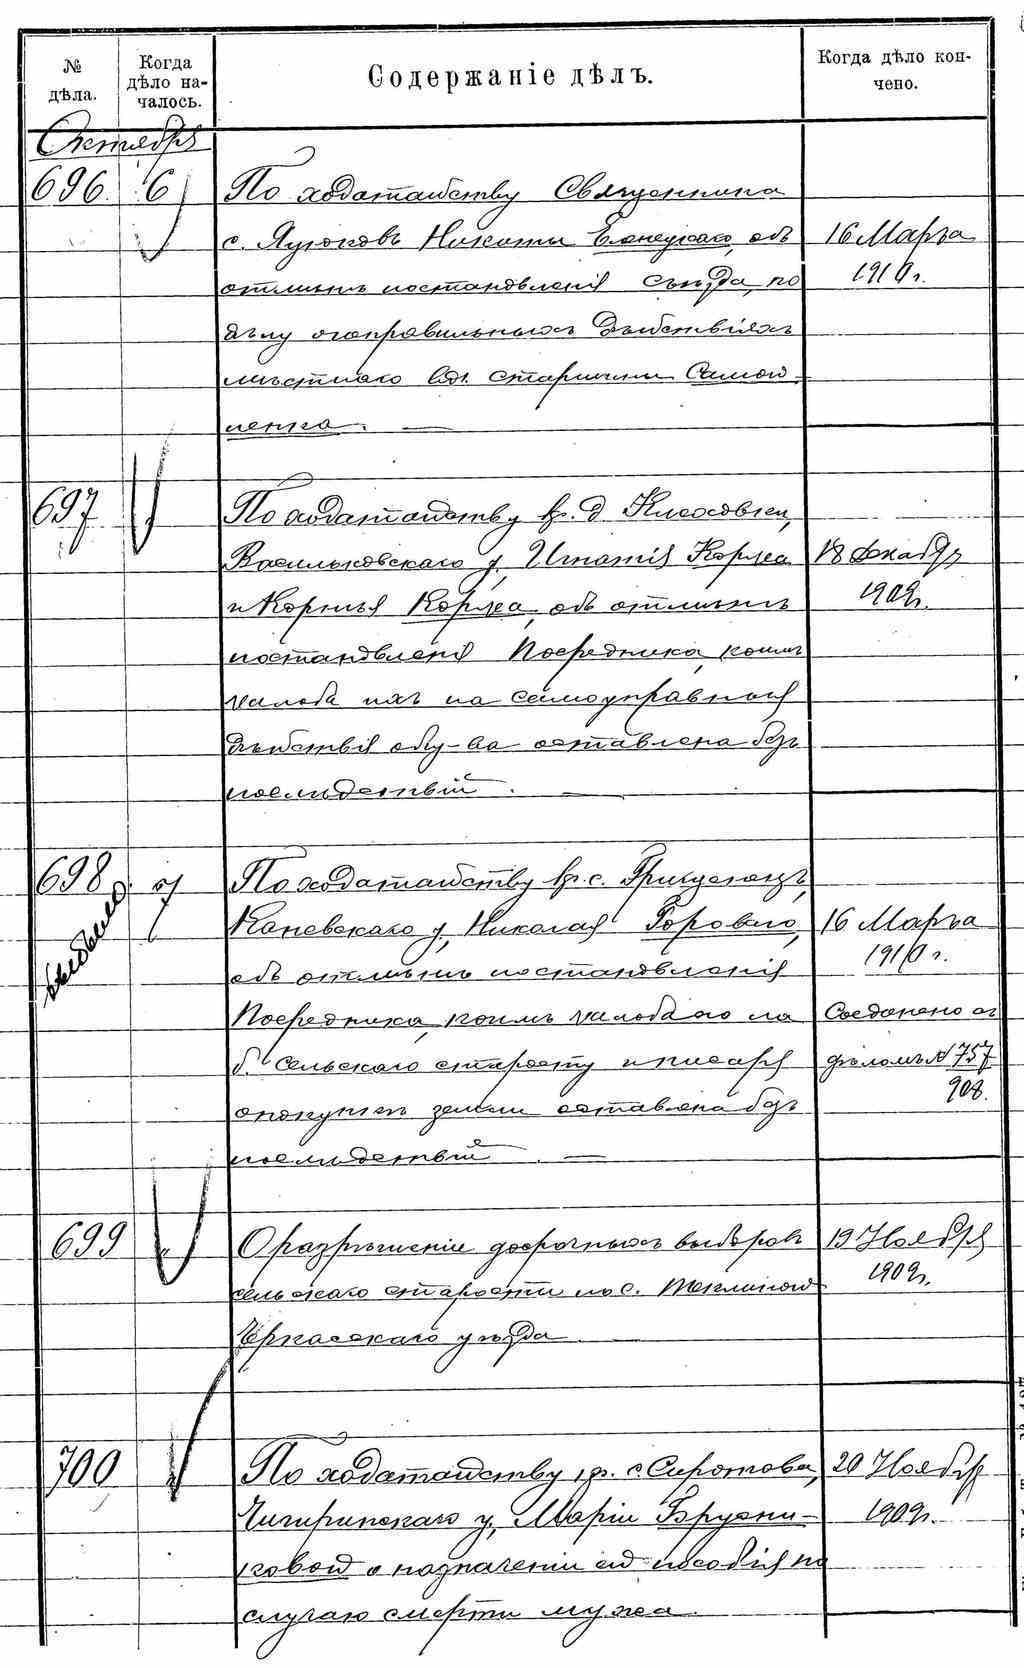 № дѣла.
Когда дѣло началось.
Содержаніе дѣлъ.
Когда дѣло кончено.
Октября
696. 6 По ходатайству Священника
с. Яцюковъ Никиты об 16 Марта
отмѣнѣ постановленія съѣзда, по 1910 г.
дѣлу о неправильныхъ дѣйствіяхъ
мѣстнаго вол. старшины Самой
ленка.
697 По ходатайству кр. д.
Васильковскаго у, Игнатія Коржа 18 Декабр
и Корнія Коржа, объ отмѣнѣ 1909 г.
постановленія Посредника, коимъ
жалоба ихъ на самоуправныя
дѣйствія общ-ва оставлена безъ
послѣдствій.
698 7 По ходатайству кр. с. Грищенецъ,
Каневскаго у, Николая Бороваго, 16 Марта
объ отмѣнѣ постановленія 1910 г.
Посредника, коимъ жалоба его на Соединено съ
б. сельскаго старосту и писаря дѣломъ № 757
о покупкѣ земли оставлена безъ 908.
послѣдствій.
699 О разрѣшеніи досрочныхъ выборовъ 19 Ноября
сельскаго старосты по с. Теклиной 1909 г.
Черкасскаго уѣзда.
700 По ходатайству кр. с. Сиротова, 20 Ноябр
Чигиринскаго у, Маріи Брусни- 1909 г.
ковой о назначеніи ей пособія по
случаю смерти мужа.